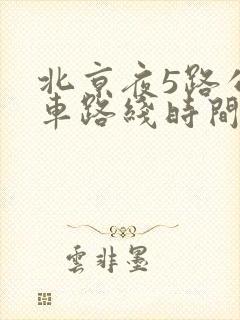 北京夜5路公
車路綫時間
雲非墨